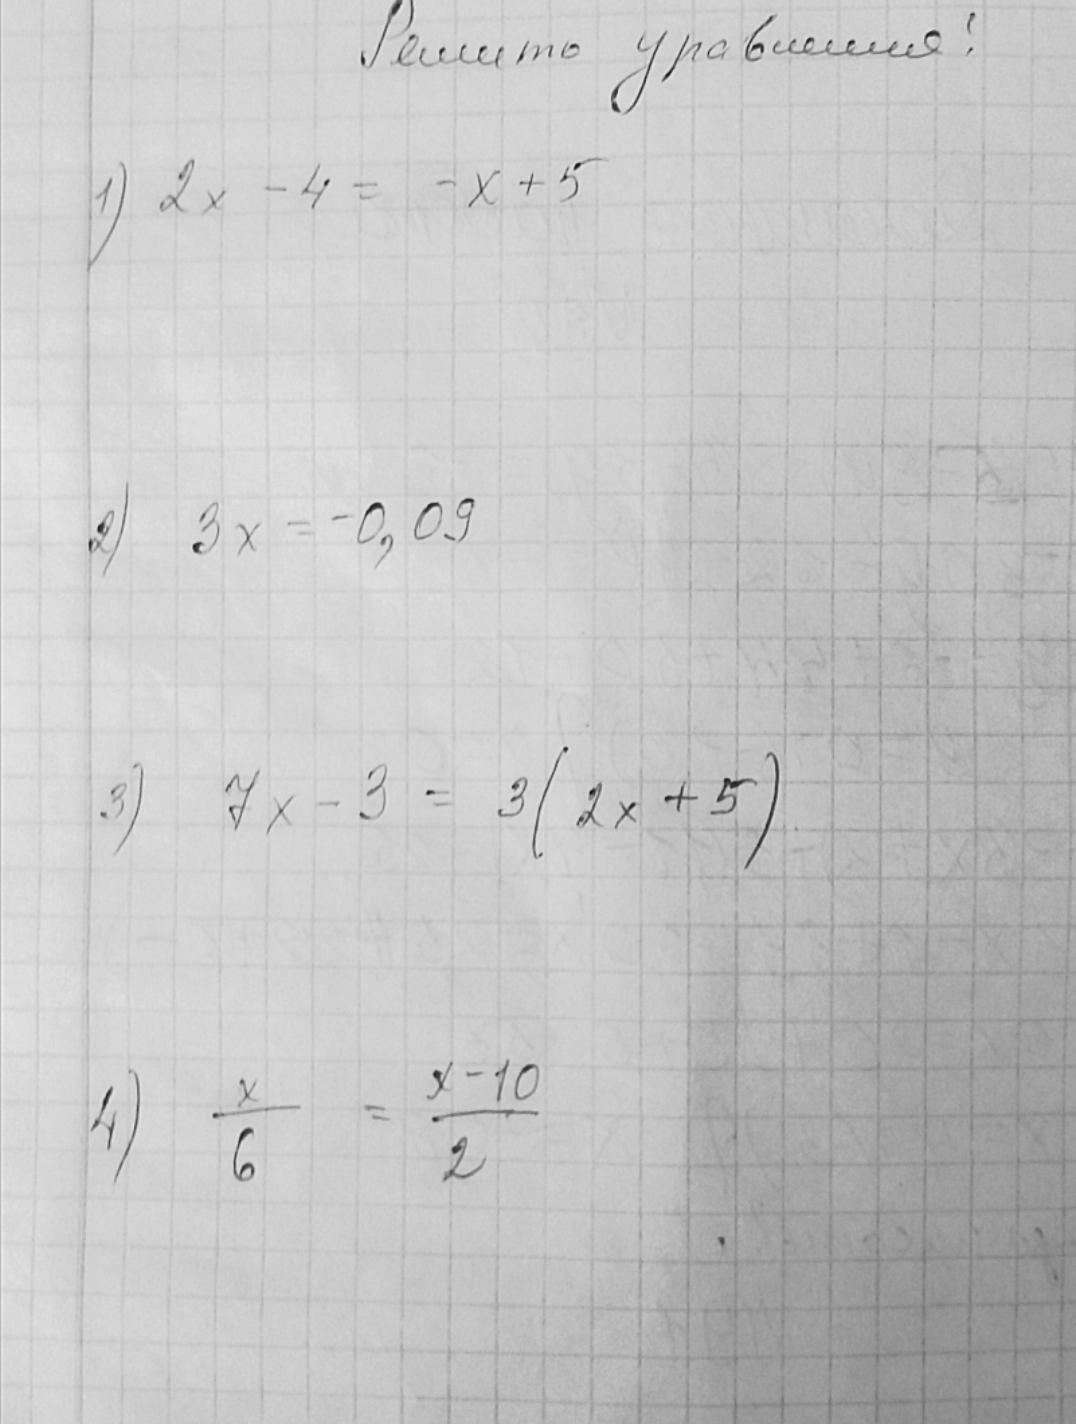 Решить уравнения:
1) 2x - 4 = -x + 5
2) 3x = -0,09
3) 7x - 3 = 3(2x + 5)
4) x/6 = x-10/2